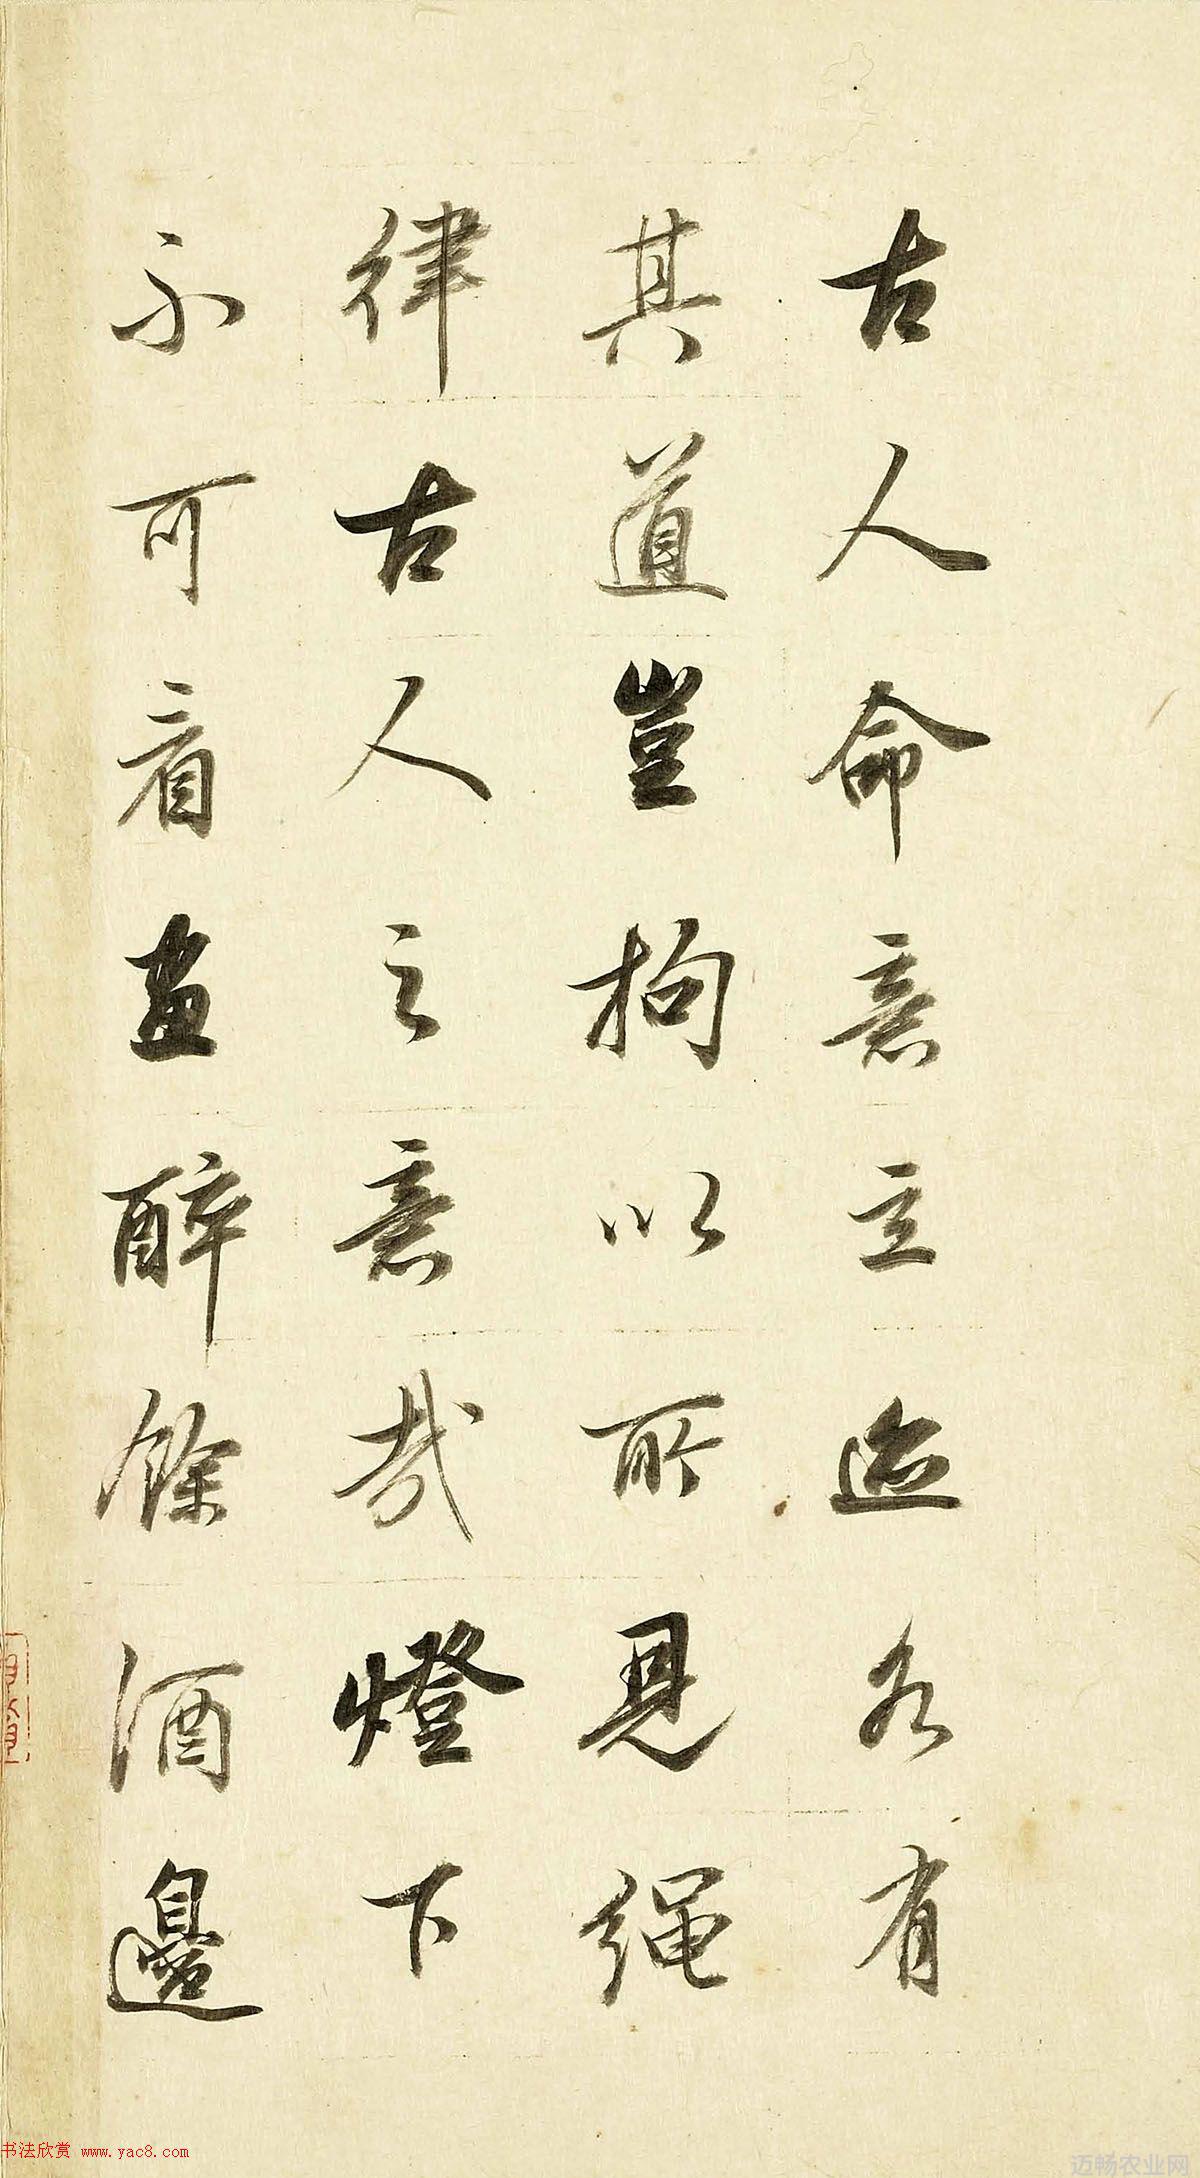 古人命意立迹各有
其道豈拘以所見繩
律古人之意哉燈下
不可看畫醉餘酒邊
书法欣赏 www.yac8.com
迈畅农业网